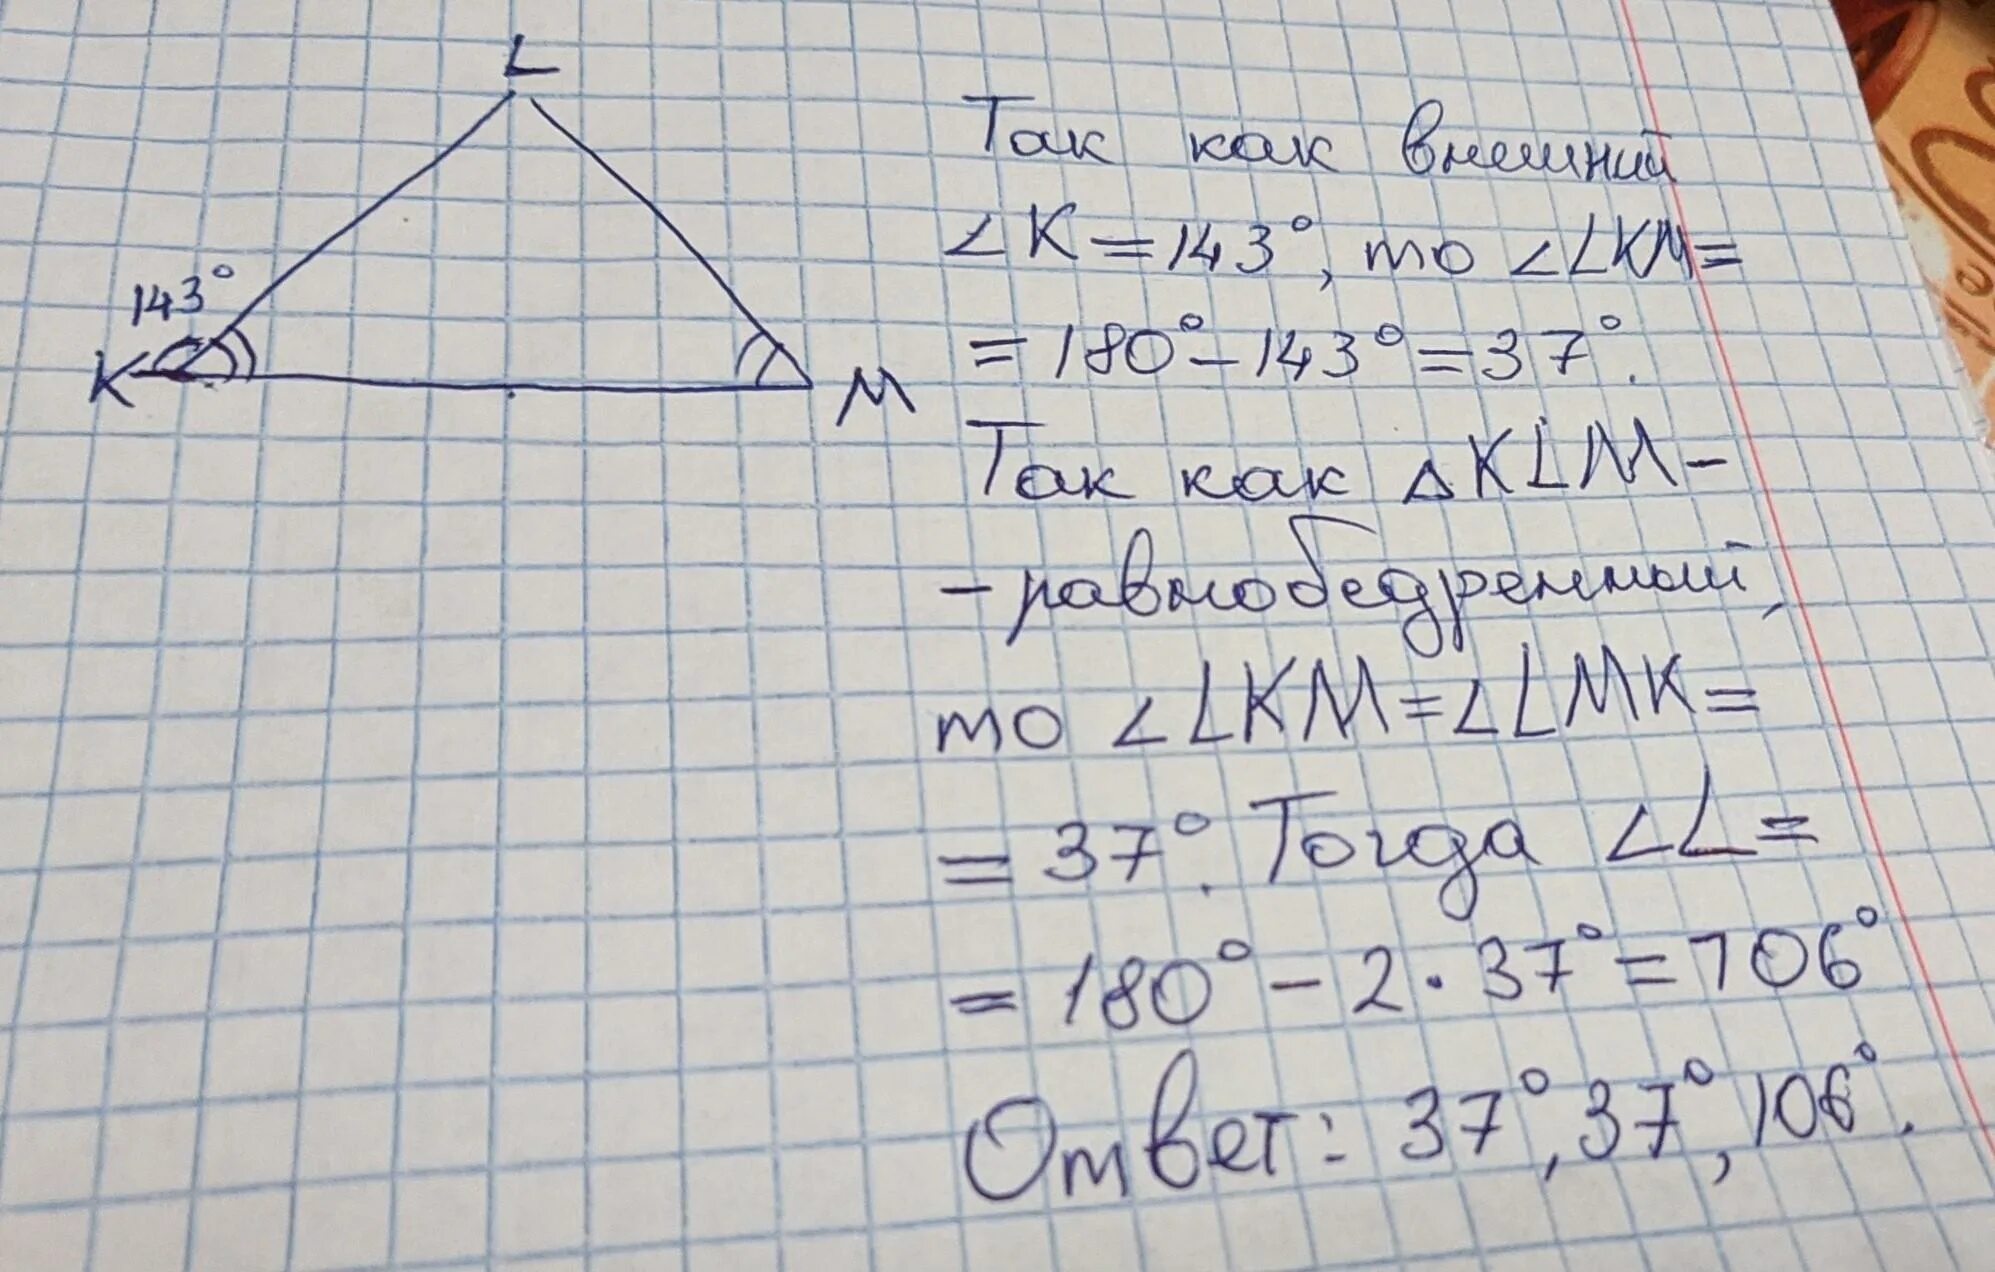 L
143°
K
M
Так как внешний
∠K = 143°, то ∠LKM =
= 180° - 143° = 37°.
Так как △KLM -
- равнобедренный,
то ∠LKM = ∠LMK =
= 37°. Тогда ∠L =
= 180° - 2 · 37° = 106°
Ответ: 37°, 37°, 106°.